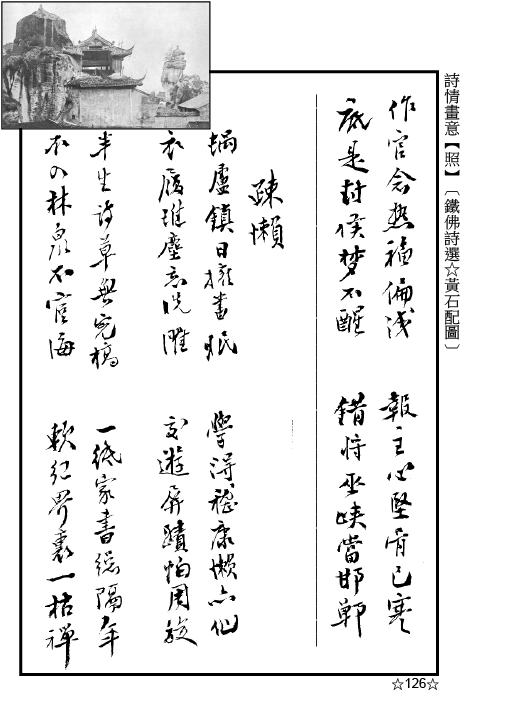 詩情畫意【照】〔鐵佛詩選☆黃石配圖〕
作官念熱福偏淺 報主心堅骨已寒
底是封侯梦不醒 錯將巫峽當邯鄲
疎懶
蝸廬鎮日擁書眠 學得嵇康懶亦仙
衣履堆塵忘洗濯 交遊屏蹟怕周旋
半生詩草無完稿 一紙家書總隔年
不 林泉不宦海 軟紅界裏一枯禪
☆126☆